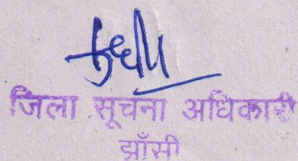 जिला सूचना अधिकारी
झाँसी